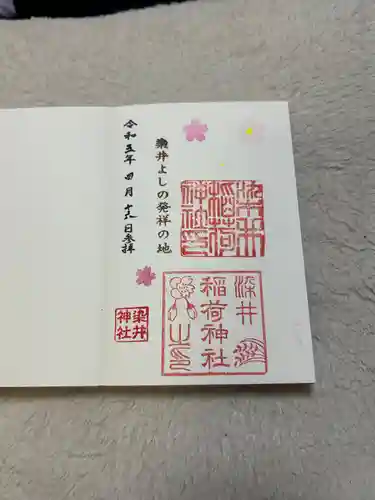 染井
稲荷
神社印
染井
稲荷神社
之印
染井よしの発祥の地
令和五年 四月 十八日参拝
染井
神社